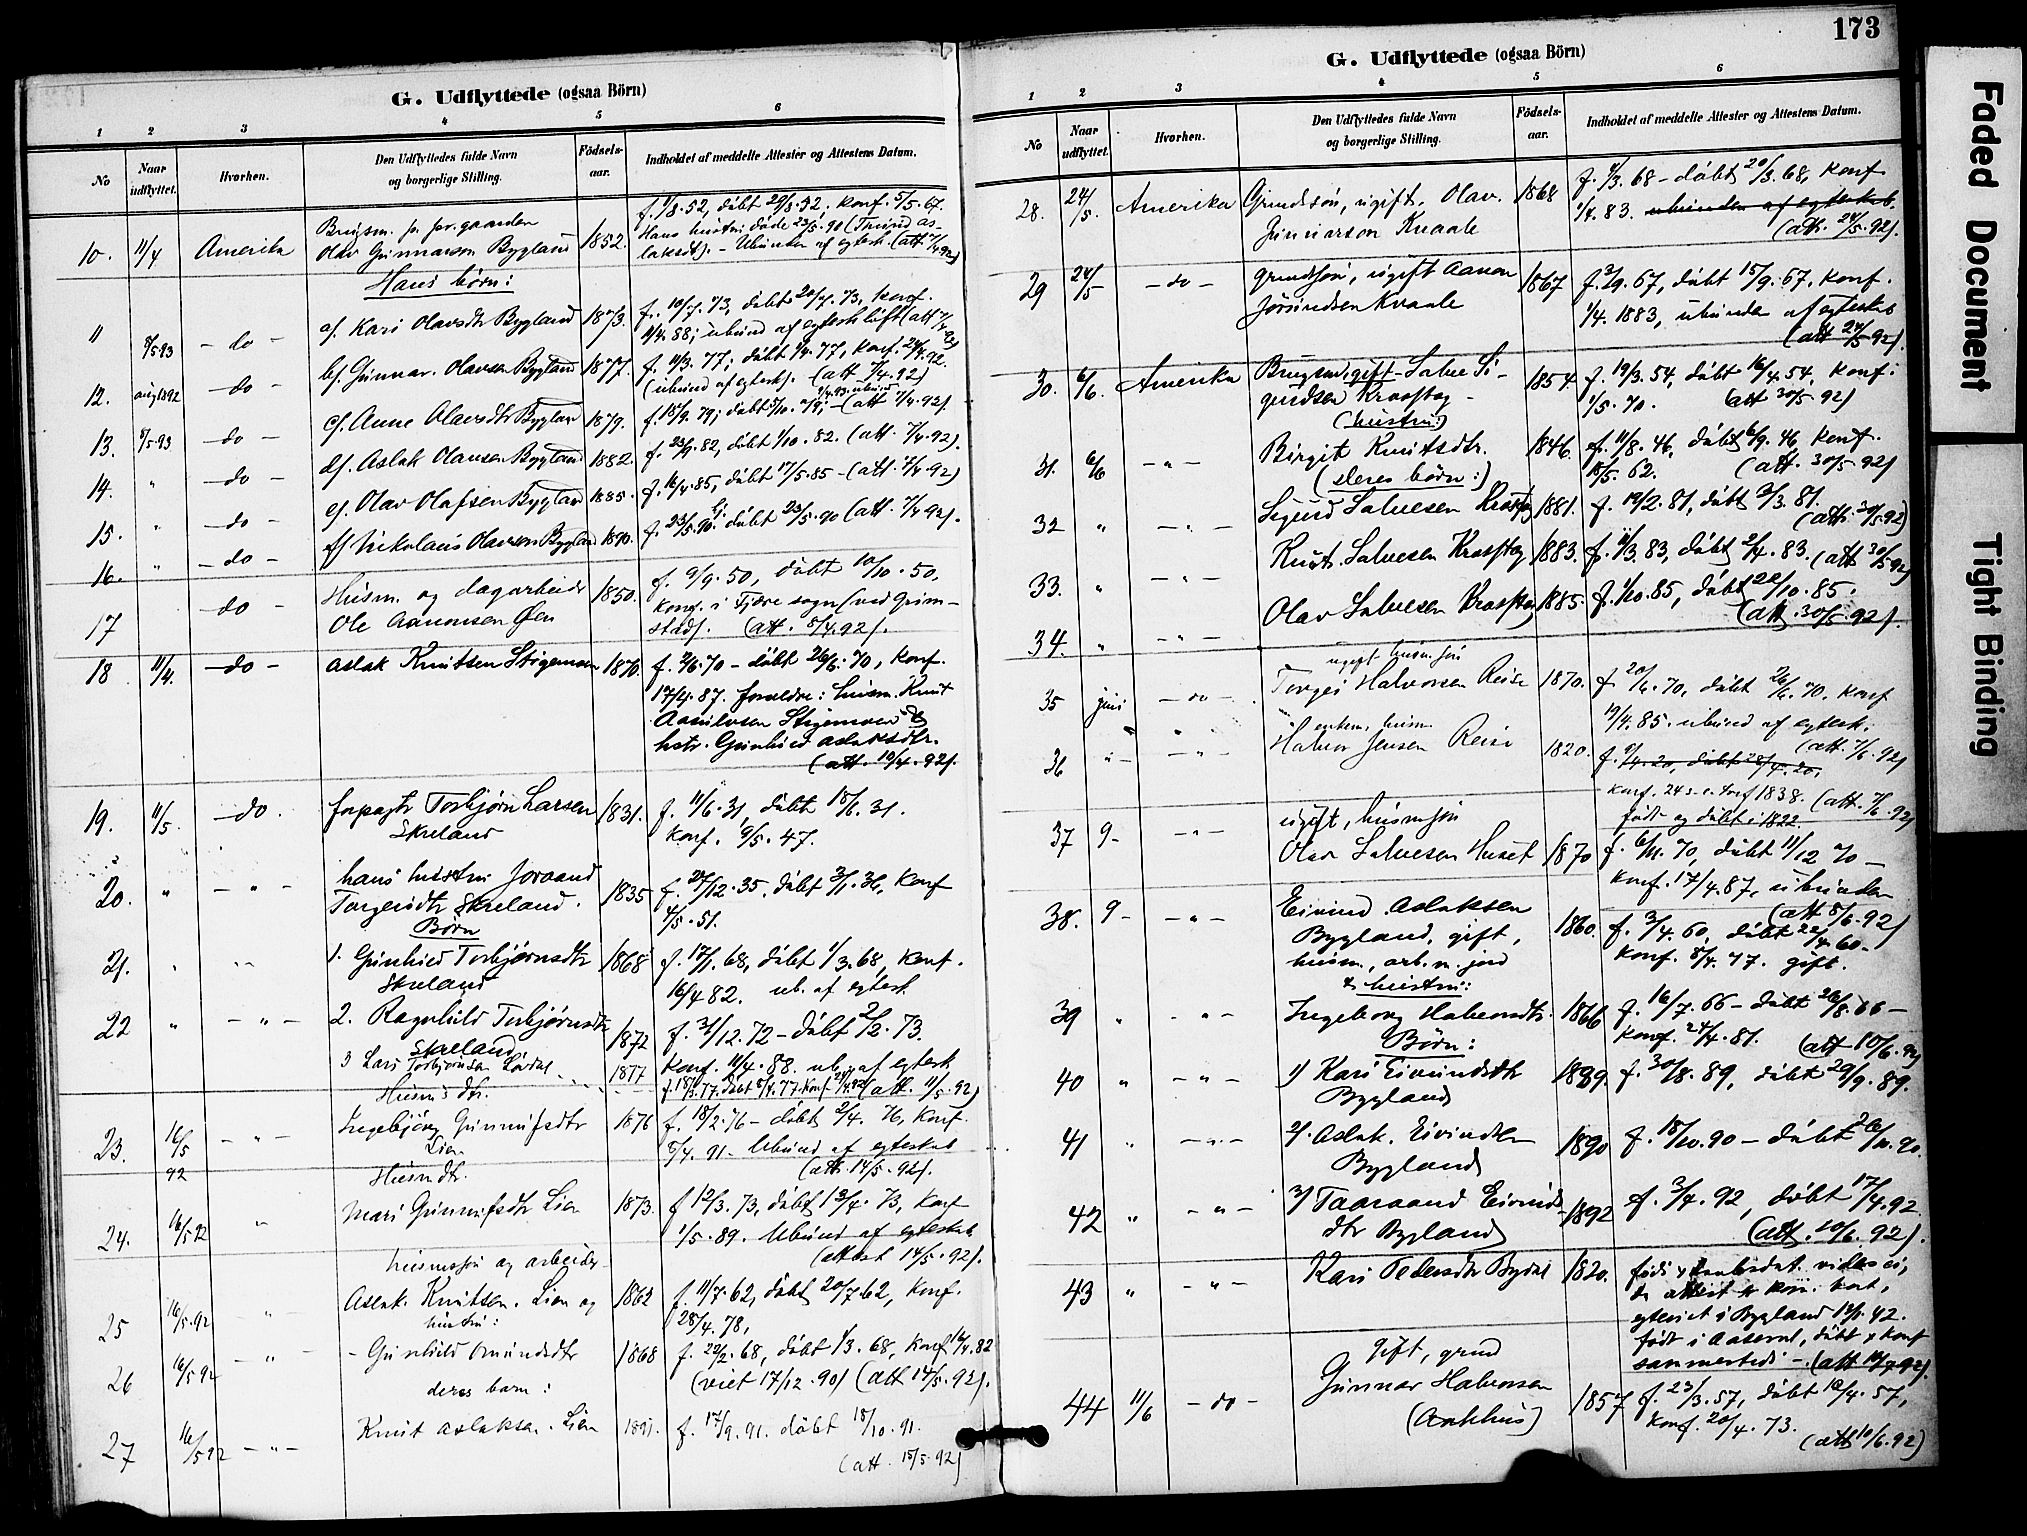 G. Udflyttede (ogsaa Börn)
1 2 3 4 5 6
No
Naar udflyttet.
Hvorhen.
Den Udflyttedes fulde Navn og borgerlige Stilling.
Födsels-aar.
Indholdet af meddelte Attester og Attestens Datum.
10. 11/4 Amerika
Olav Gunnarson Bygland 1852.
f. 1/8.52, döbt 29/8.52. konf. 5/5.67.
Hans hustru döde 23/5.90
Ubunden af egtesk. (att 7/4 92)
Hans börn:
11 8/5 93 - do - a). Kari Olavsdtr Bygland 1873. f. 10/7.73, döbt 20/7.73, konf.
12. aug 1892 - do - b). Gunnar Olavsen Bygland 1877. f. 11/3.77, döbt 1/4.77, konf. 24/4.92.
(ubund af egtesk). (att 7/4.92)
13. 8/5 93 - do - c). Anne Olavsdtr Bygland 1879. (att 7/4.92).
14. " - do - d). Aslak Olavsen Bygland 1882. f. 23/9.82, döbt 1/10.82. (att. 7/4.92).
15. " - do - e). Olav Olafsen Bygland 1885. f. 16/4.85, döbt 17/5.85 - (att. 7/4 92)
16. " - do - f) Nikolaus Olavsen Bygland 1890. f. 23/5.90. döbt 23/5.90 (att. 7/4 92).
17 do -
Husm. og dagarbeider
Ole Aanonsen Øen 1850.
f. 9/9.50, döbt 10/10.50.
konf. i Fjære sogn (ved Grim-
stad). (att. 8/4.92).
18 11/4. - do - Aslak Knutsen Stigemoen 1870. f. 2/6.70 - döbt 26/6.70, konf.
17/4.87. forældre: husm. Knut
Stigemoen &
hstr. Gunhild Aslaksdtr.
(att. 19/4.92).
19. 11/5. - do - Torbjörn Larsen
Skreland 1831. f. 11/6.31, döbt 15/6.31.
konf. 9/5.47.
20. " - " -
hans hustru Joraand
Torgeirsdtr Skreland. 1835 f. 27/12.35, döbt 3/1.36, konf
4/5.51.
Börn
21. 1. Gunhild Torbjörnsdtr
Skreland 1868 f. 17/1.68, döbt 1/3.68, konf.
16/4 82. ub. af egtesk.
22 " - " - 2. Ragnhild Torbjörnsdtr
Skreland 1872 f. 31/12.72 - döbt 2/2.73.
konf. 11/4.88. ub. af egtesk
3 Lars Torbjörnsen 1877 (att. 11/5.92)
Husm's dtr.
23. 16/5 92 - " - Ingebjörg Gunnufsdtr
Lien 1876 f. 18/2.76 - döbt 2/4.76, konf.
5/4.91 - Ubund af egteskab
(att. 14/5.92).
Husm dtr.
24. 16/5 92 " Mari Gunnufsdtr Lien 1873. f 12/3.73, döbt 13/4.73, konf
1/5.89. Ubund af egteskab
(attest 14/5.92).
husmssön og arbeider
25 16/5.92 " Aslak Knutsen Lien og
hustru: 1862 f. 11/7.62, döbt 20/7.62, konf.
28/4.78,
26 16/5 92 - " - Gunhild Omundsdtr 1868 f. 22/2.68, döbt 1/3.68, konf 16/4.82
(viet 17/12.90) (att 14/5.92).
deres barn:
27 16/5 92 - " - Knut Aslaksen Lien 1891. f. 17/9.91. döbt 18/10.91.
(att. 15/5.92)
173
G. Udflyttede (ogsaa Börn)
1 2 3 4 5 6
No
Naar udflyttet.
Hvorhen.
Den Udflyttedes fulde Navn og borgerlige Stilling.
Födsels-aar.
Indholdet af meddelte Attester og Attestens Datum.
28. 24/5. Amerika Grundsön, ugift, Olav
Gunnarson Kvaale 1868 döbt 20/3.68, konf
1/4.83. ubunden af egteskab.
(att. 24/5.92).
29 24/5 - do - Grundsön, ugift Aanon
Jörundsen Kvaale 1867 döbt 15/9.67, konf.
1/4.1883, ubunden af egteskab
(att 24/5 92).
30. 6/6. Amerika Brugsm, gift - Salve Si-
gurdsen 1854 f. 19/3.54, döbt 16/4.54, konf.
1/5.70. (att 30/5.92)
(hustru)
31. 6/6 - " - Birgit Knutsdtr. 1846. f. 11/8.46, döbt 6/9.46 konf.
18/5.62. (att. 30/5 92)
(deres börn:)
32 " - " - Sigurd Salvesen 1881. f. 19/2.81, döbt 3/3.81.
(att. 30/5.92)
33. " - " - Knut Salvesen 1883. f. 11/3.83, döbt 2/4.83. (att 30/5 92)
34. " - " - Olav Salvesen 1885. f. 1/10.85, döbt 22/10.85.
(att. 30/5.92).
ugift husm. sön
35 juni - do - Torgei Halvorsen Reise 1870. f 20/6.70, döbt 26/6.70. konf
19/4.85. ubund af egtesk.
(att. 7/6.92)
enkem, husm
36 " - " - Halvor Jensen Reise 1820.
1838. (att. 7/6.92)
födt og döbt i 1822.
ugift, husmsön
37 9 - - " - Olav Salvesen Huset 1870 f. 6/11.70, döbt 11/12 70 -
konf. 17/4.87, ubunden
(att 8/6.92)
38. 9 - - " - Eivind Aslaksen
Bygland, gift,
husm., arb. m. jord
& hustru: 1860. f. 3/4.60, döbt 22/4.60.
konf. 8/4.77. gift.
39 " - " - Ingeborg Halvorsdtr. 1866 f. 16/7.66 - döbt 26/8.66 -
konf. 24/4.81. (att 10/6.92)
Börn:
40 " - " - 1) Kari Eivindsdtr
Bygland 1889. f. 30/8.89, döbt 29/9.89.
41 " - " - 2). Aslak Eivindsen
Bygland 1890 f. 18/10.90 - döbt 26/11.90.
42 " - " - 3) Taaraand Eivinds-
dtr Bygland 1892 f. 3/4.92, döbt 17/4.92
(att. 10/6.92).
43 " " - Kari Pedersdtr 1820.
egteviet i Bygland
födt i Aaseral, döbt & konf
sammesteds -
44 11/6 - do -
Gift, grud
Gunnar Halvorsen
(Aakhus) 1857 f. 23/3.57, döbt 10/4.57,
konf. 20/4.73.
(att 10/6.92)
Faded Document
Tight Binding